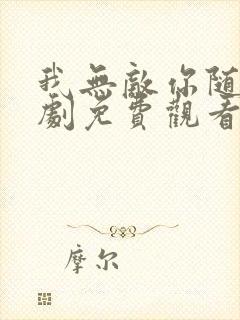 我無敵你随
劇免費觀看
摩尔